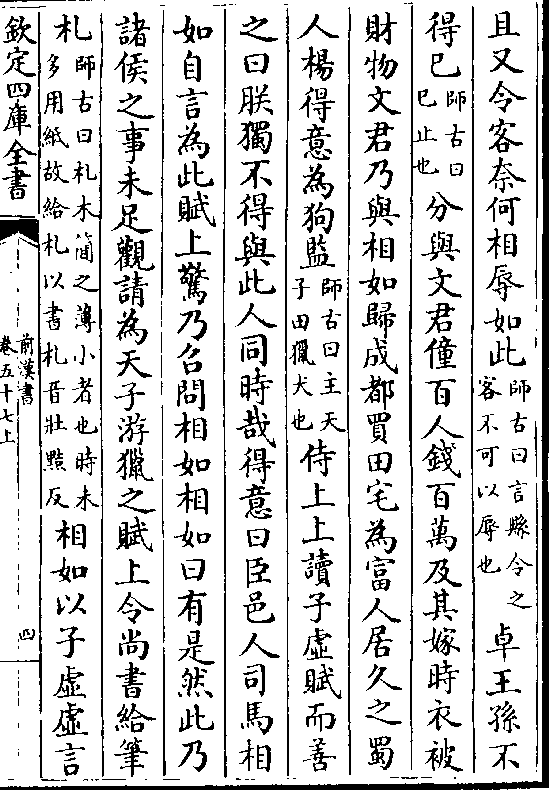 且又令客奈何相辱如此師古曰言縣令之客不可以辱也卓王孫不
得已師古曰已止也分與文君僮百人錢百萬及其嫁時衣被
財物文君乃與相如歸成都買田宅為富人居久之蜀
人楊得意為狗監師古曰主天子田獵犬也侍上上讀子虛賦而善
之曰朕獨不得與此人同時哉得意曰臣邑人司馬相
如自言為此賦上驚乃召問相如相如曰有是然此乃
諸侯之事未足觀請為天子游獵之賦上令尚書給筆
札師古曰札木簡之薄小者也時未多用紙故給札以書札音壯黠反相如以子虛虛言
欽定四庫全書
前漢書
卷五十七上
四